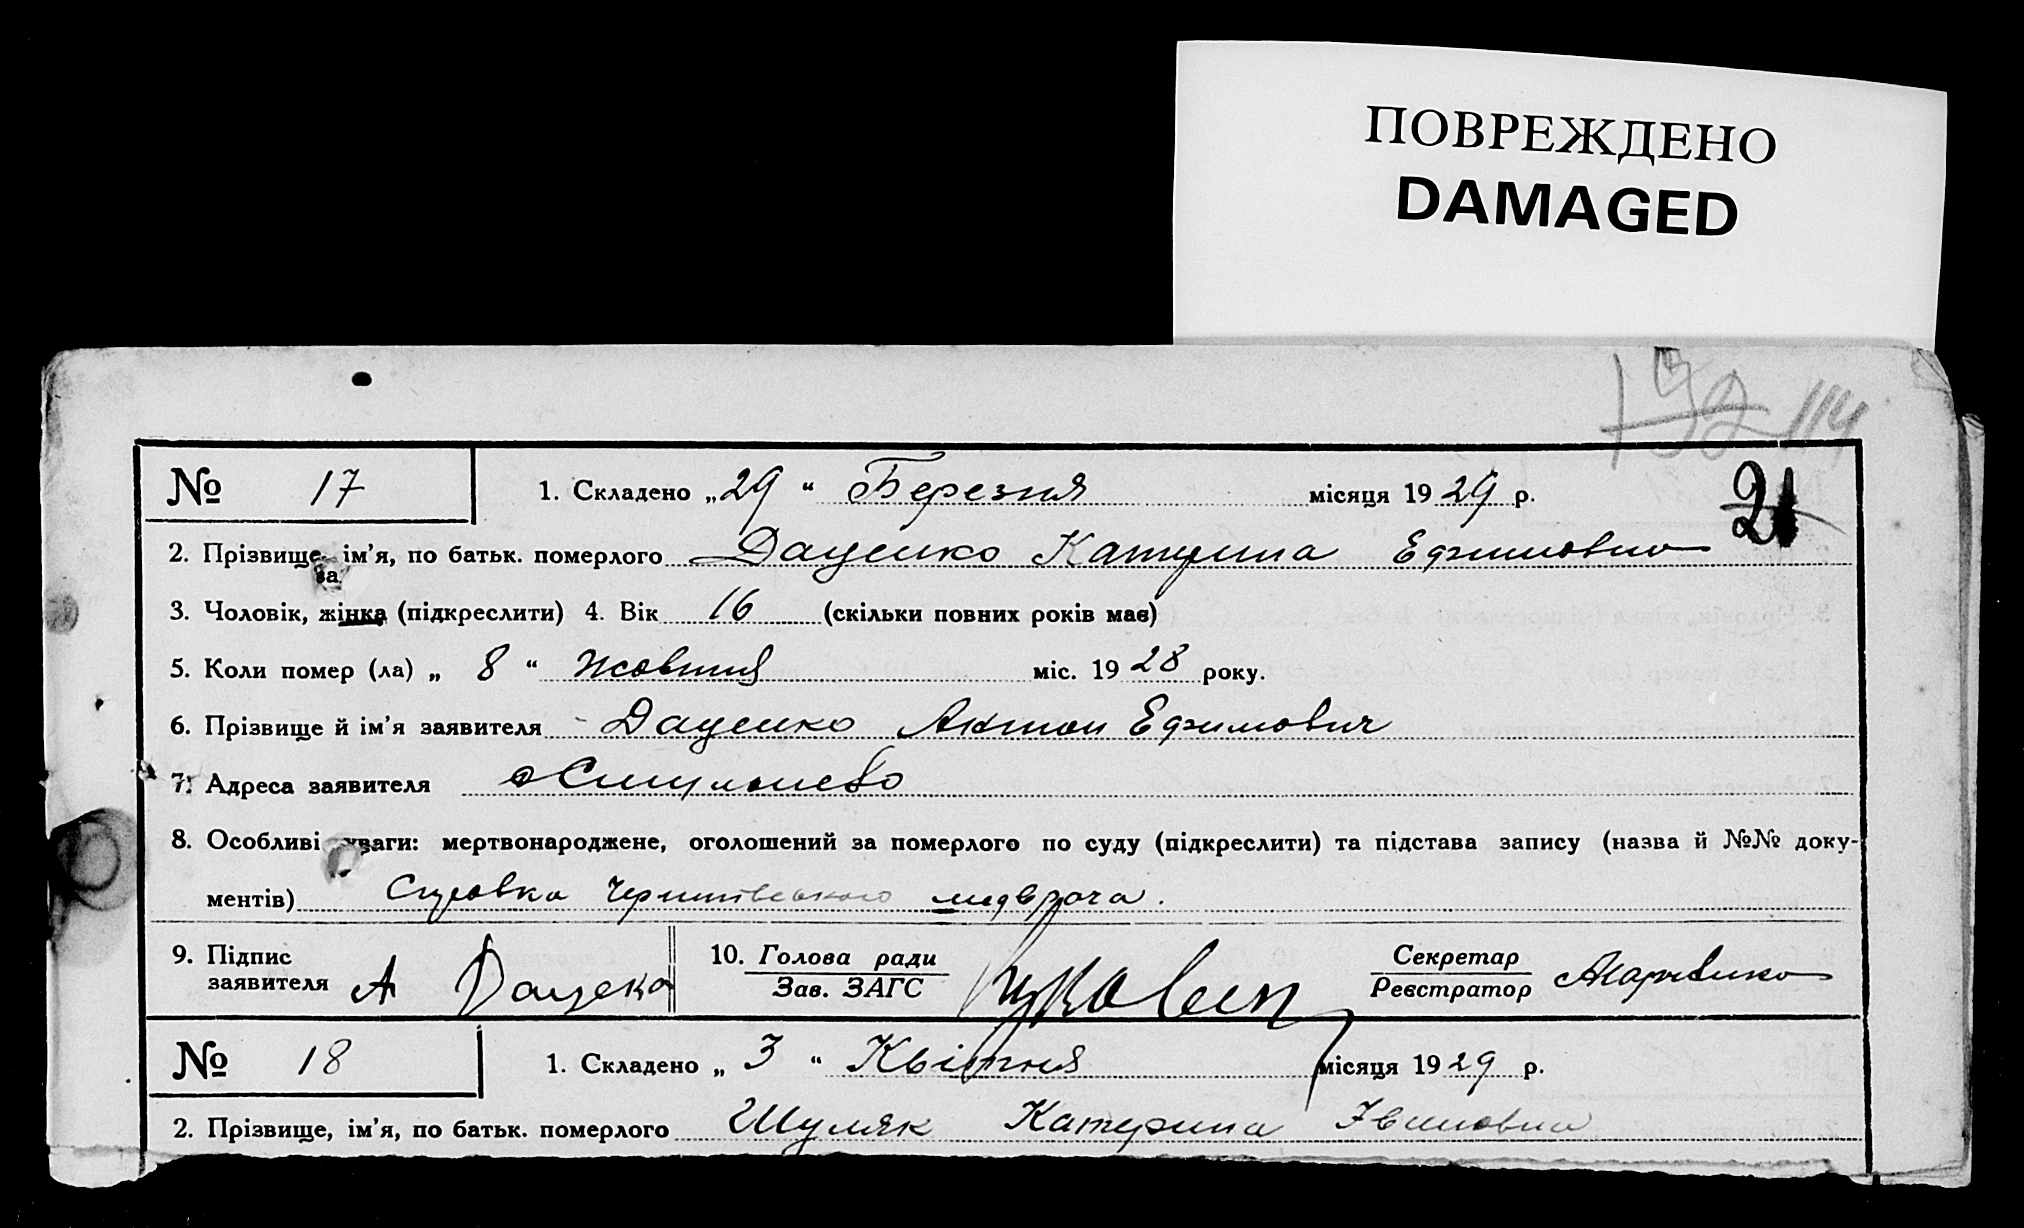 ПОВРЕЖДЕНО
DAMAGED
114
№ 17 1. Складено „29“ Березня місяця 1929 р. 21
2. Прізвище, ім’я, по батьк. померлого Даценко Катерина Ефимовна
за
3. Чоловік, жінка (підкреслити) 4. Вік 16 (скільки повних років має)
5. Коли помер (ла) „ 8 “ Жовтня міс. 1928 року.
6. Прізвище й ім’я заявителя Даценко Антон Ефимович
7. Адреса заявителя
8. Особливі уваги: мертвонароджене, оголошений за померлого по суду (підкреслити) та підстава запису (назва й №№ доку-
ментів) Справка медврача.
9. Підпис заявителя А Даценко 10. Голова ради Секретар
Зав. ЗАГС Реєстратор
№ 18 1. Складено „ 3 “ Квітня місяця 1929 р.
2. Прізвище, ім’я, по батьк. померлого Шуляк Катерина